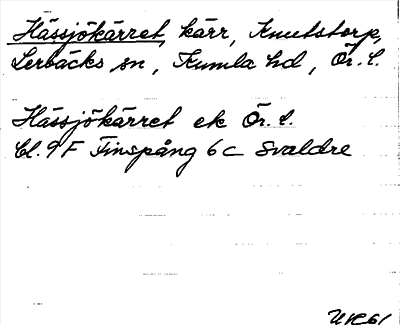 Hässjökärret, kärr, Knutstorp,
Lerbäcks sn, Kumla hd, Ör. l.
Hässjökärret ek Ör. l.
Bl. 9F Finspång 6c Svaldre